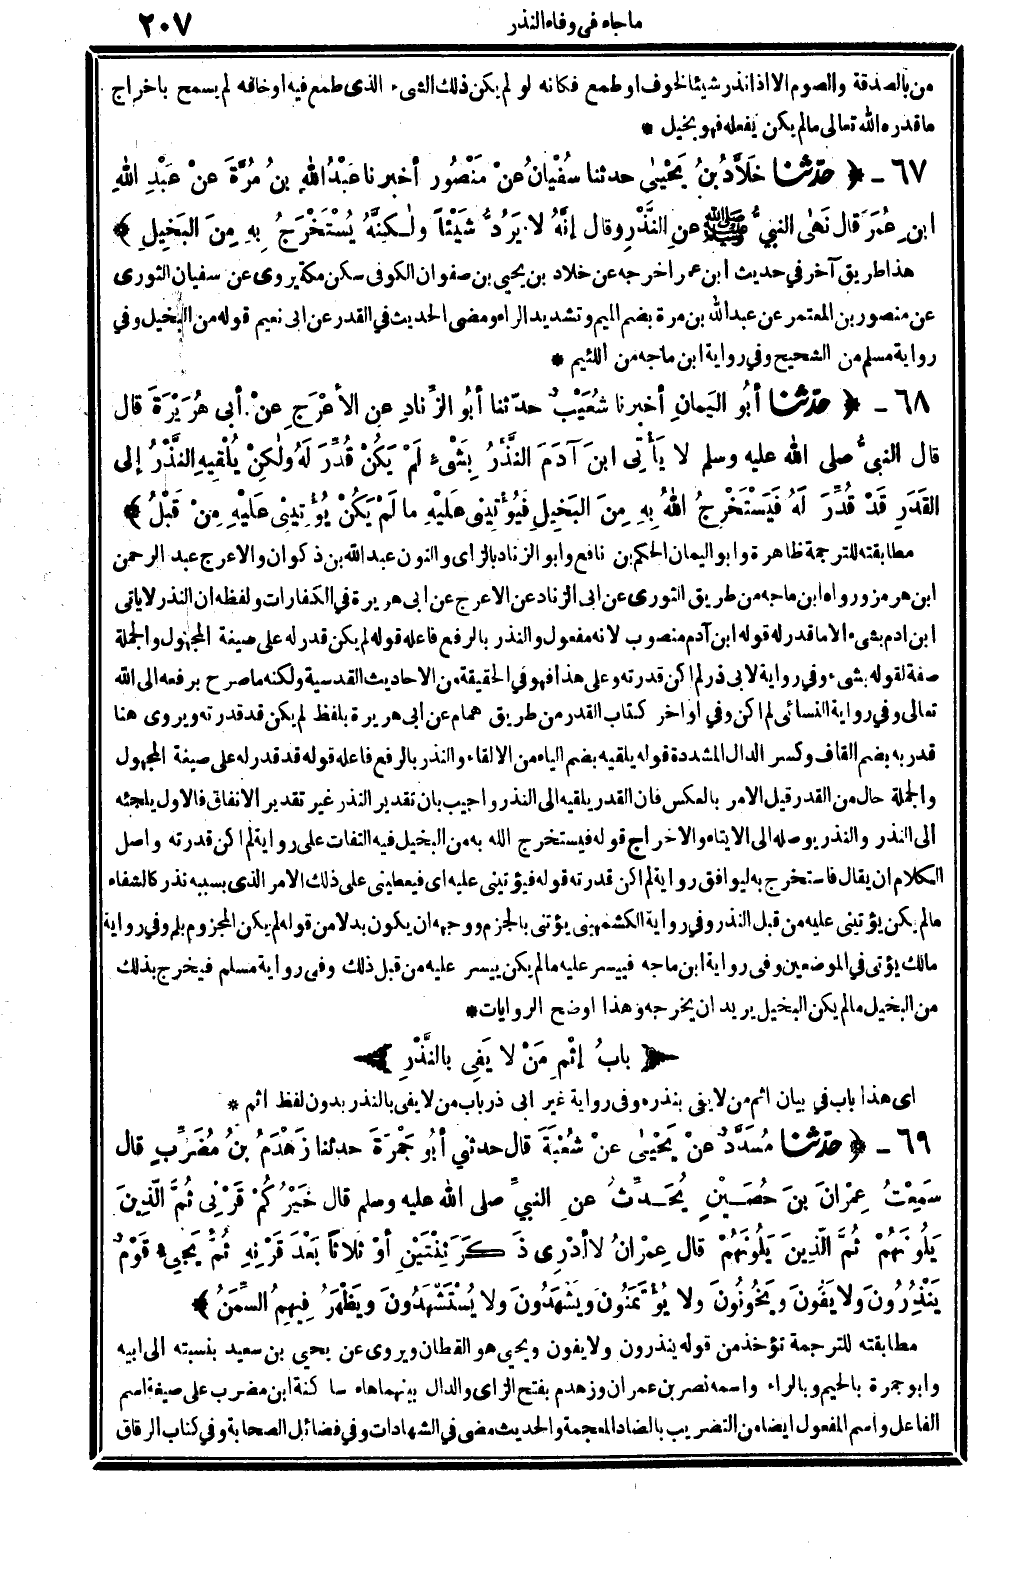 ما جاء في وفاء النذر
٢٠٧
من بالصدقة والصوم الا اذا نذر شيئا لخوف او طمع فكانه لو لم يكن ذلك الشيء الذى طمع فيه او خافه لم يسمح باخراج
ما قدره الله تعالى ما لم يكن يفعله فهو بخيل *
٦٧ - ﴿ حدّثنا خَلاَّدُ بنُ يَحْيٰى حدثنا سُفْيانُ عنْ مَنْصُور أخبرنا عَبْدُ اللهِ بنُ مُرَّةَ عنْ عَبْدِ اللهِ
ابنِ عُمَرَ قال نَهٰى النبيُّ ﷺ عنِ النَّذْرِ وقال إنَّهُ لا يَرُدُّ شَيْئاً ولٰكِنَّهُ يُسْتَخْرَجُ بِهِ مِنَ البَخِيلِ ﴾
هذا طريق آخر في حديث ابن عمر اخرجه عن خلاد بن يحيى بن صفوان الكوفى سكن مكة يروى عن سفيان الثورى
عن منصور بن المعتمر عن عبد الله بن مرة بضم الميم وتشديد الراء ومضى الحديث في القدر عن ابى نعيم قوله من البخيل وفي
رواية مسلم من الشحيح وفي رواية ابن ماجه من اللئيم *
٦٨ - ﴿ حدّثنا أبُو اليَمانِ أخبرنا شُعَيْبٌ حدّثنا أبُو الزِّنادِ عنِ الأعْرَجِ عنْ أبى هُرَيْرَةَ قال
قال النبيُّ صلى الله عليه وسلم لا يَأتِى ابنَ آدَمَ النَّذْرُ بِشَىْءٍ لَمْ يَكُنْ قُدِّرَ لَهُ ولٰكِنْ يُلْقِيهِ النَّذْرُ إلى
القَدَرِ قَدْ قُدِّرَ لَهُ فَيَسْتَخْرِجُ اللهُ بِهِ مِنَ البَخِيلِ فيُؤْتِينِى عَلَيْهِ ما لَمْ يَكُنْ يُؤْتِينِى عَلَيْهِ مِنْ قَبْلُ ﴾
مطابقته للترجمة ظاهرة وابو اليمان الحكم بن نافع وابو الزناد بالزاى والنون عبد الله بن ذكوان والاعرج عبد الرحمن
ابن هرمز ورواه ابن ماجه من طريق الثورى عن ابى الزناد عن الاعرج عن ابى هريرة في الكفارات ولفظه ان النذر لاياتى
ابن ادم بشىء الا ما قدر له قوله ابن آدم منصوب لانه مفعول والنذر بالرفع فاعله قوله لم يكن قدر له على صيغة المجهول والجملة
صفة لقوله بشىء وفي رواية لابى ذر لم اكن قدرته وعلى هذا فهو في الحقيقة من الاحاديث القدسية ولكنه ما صرح برفعه الى الله
تعالى وفي رواية النسائى لم اكن وفي اواخر كتاب القدر من طريق همام عن ابى هريرة بلفظ لم يكن قد قدرته ويروى هنا
قدر به بضم القاف وكسر الدال المشددة قوله يلقيه بضم الياء من الالقاء والنذر بالرفع فاعله قوله قد قدر له على صيغة المجهول
والجملة حال من القدر قيل الامر بالعكس فان القدر يلقيه الى النذر واجيب بان تقدير النذر غير تقدير الانفاق فالاول يلجئه
الى النذر والنذر يوصله الى الايتاء والاخراج قوله فيستخرج الله به من البخيل فيه التفات على رواية لم اكن قدرته واصل
الكلام ان يقال فاستخرج به ليوافق رواية لم اكن قدرته قوله فيؤتينى عليه اى فيعطينى على ذلك الامر الذى بسببه نذر كالشفاء
مالم يكن يؤتينى عليه من قبل النذر وفي رواية الكشميهنى يؤتنى بالجزم ووجهه ان يكون بدلا من قوله لم يكن المجزوم بلم وفي رواية
مالك يؤتى في الموضعين وفى رواية ابن ماجه فييسر عليه مالم يكن ييسر عليه من قبل ذلك وفى رواية مسلم فيخرج بذلك
من البخيل مالم يكن البخيل يريد ان يخرجه وهذا اوضح الروايات *
﴿ بابُ إثْمِ مَنْ لا يَفِى بالنَّذْرِ ﴾
اى هذا باب في بيان اثم من لايفى بنذره وفى رواية غير ابى ذر باب من لايفى بالنذر بدون لفظ اثم *
٦٩ - ﴿ حدّثنا مُسَدَّدٌ عنْ يَحْيٰى عنْ شُعْبَةَ قال حدثني أبُو جَمْرَةَ حدثنا زَهْدَمُ بنُ مُضَرِّبٍ قال
سَمِعْتُ عِمْرانَ بنَ حُصَيْنٍ يُحَدِّثُ عنِ النبيِّ صلى الله عليه وسلم قال خَيْرُكُمْ قَرْنِى ثُمَّ الّذِينَ
يَلُونَهُمْ ثُمَّ الّذِينَ يَلُونَهُمْ قال عِمْرانُ لا أدْرِى ذَكَرَ ثِنْتَيْنِ أوْ ثلاثاً بَعْدَ قَرْنِهِ ثُمَّ يَجِىءُ قَوْمٌ
يَنْذِرُونَ ولا يَفُونَ ويَخُونُونَ ولا يُؤْتَمَنُونَ ويَشْهَدُونَ ولا يُسْتَشْهَدُونَ ويَظْهَرُ فِيهِمُ السِّمَنُ ﴾
مطابقته للترجمة تؤخذ من قوله ينذرون ولا يفون ويحيى هو القطان ويروى عن يحيى بن سعيد بنسبته الى ابيه
وابو جمرة بالجيم وبالراء واسمه نصر بن عمران وزهدم بفتح الزاى والدال بينهما هاء ساكنة ابن مضرب على صيغة اسم
الفاعل واسم المفعول ايضا من التضريب بالضاد المعجمة والحديث مضى في الشهادات وفي فضائل الصحابة وفي كتاب الرقاق